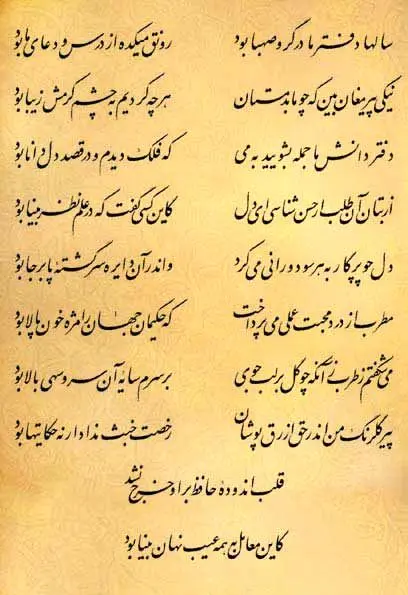 سالها دفتر ما در گرو صهبا بود رونق میکده از درس و دعای ما بود
نیکی پیر مغان بین که چو ما بدمستان هر چه کردیم به چشم کرمش زیبا بود
دفتر دانش ما جمله بشویید به می که فلک دیدم و در قصد دل دانا بود
از بتان آن طلب ار حسن شناسی ای دل کاین کسی گفت که در علم نظر بینا بود
دل چو پرگار به هر سو دورانی می کرد و اندر آن دایره سرگشته پابرجا بود
مطرب از درد محبت عملی می پرداخت که حکیمان جهان را مژه خون پالا بود
می شکفتم ز طرب زآنکه چو گل بر لب جوی بر سرم سایه آن سرو سهی بالا بود
پیر گلرنگ من اندر حق ازرق پوشان رخصت خبث نداد ار نه حکایتها بود
قلب اندوده حافظ بر او خرج نشد
کاین معامل به همه عیب نهان بینا بود